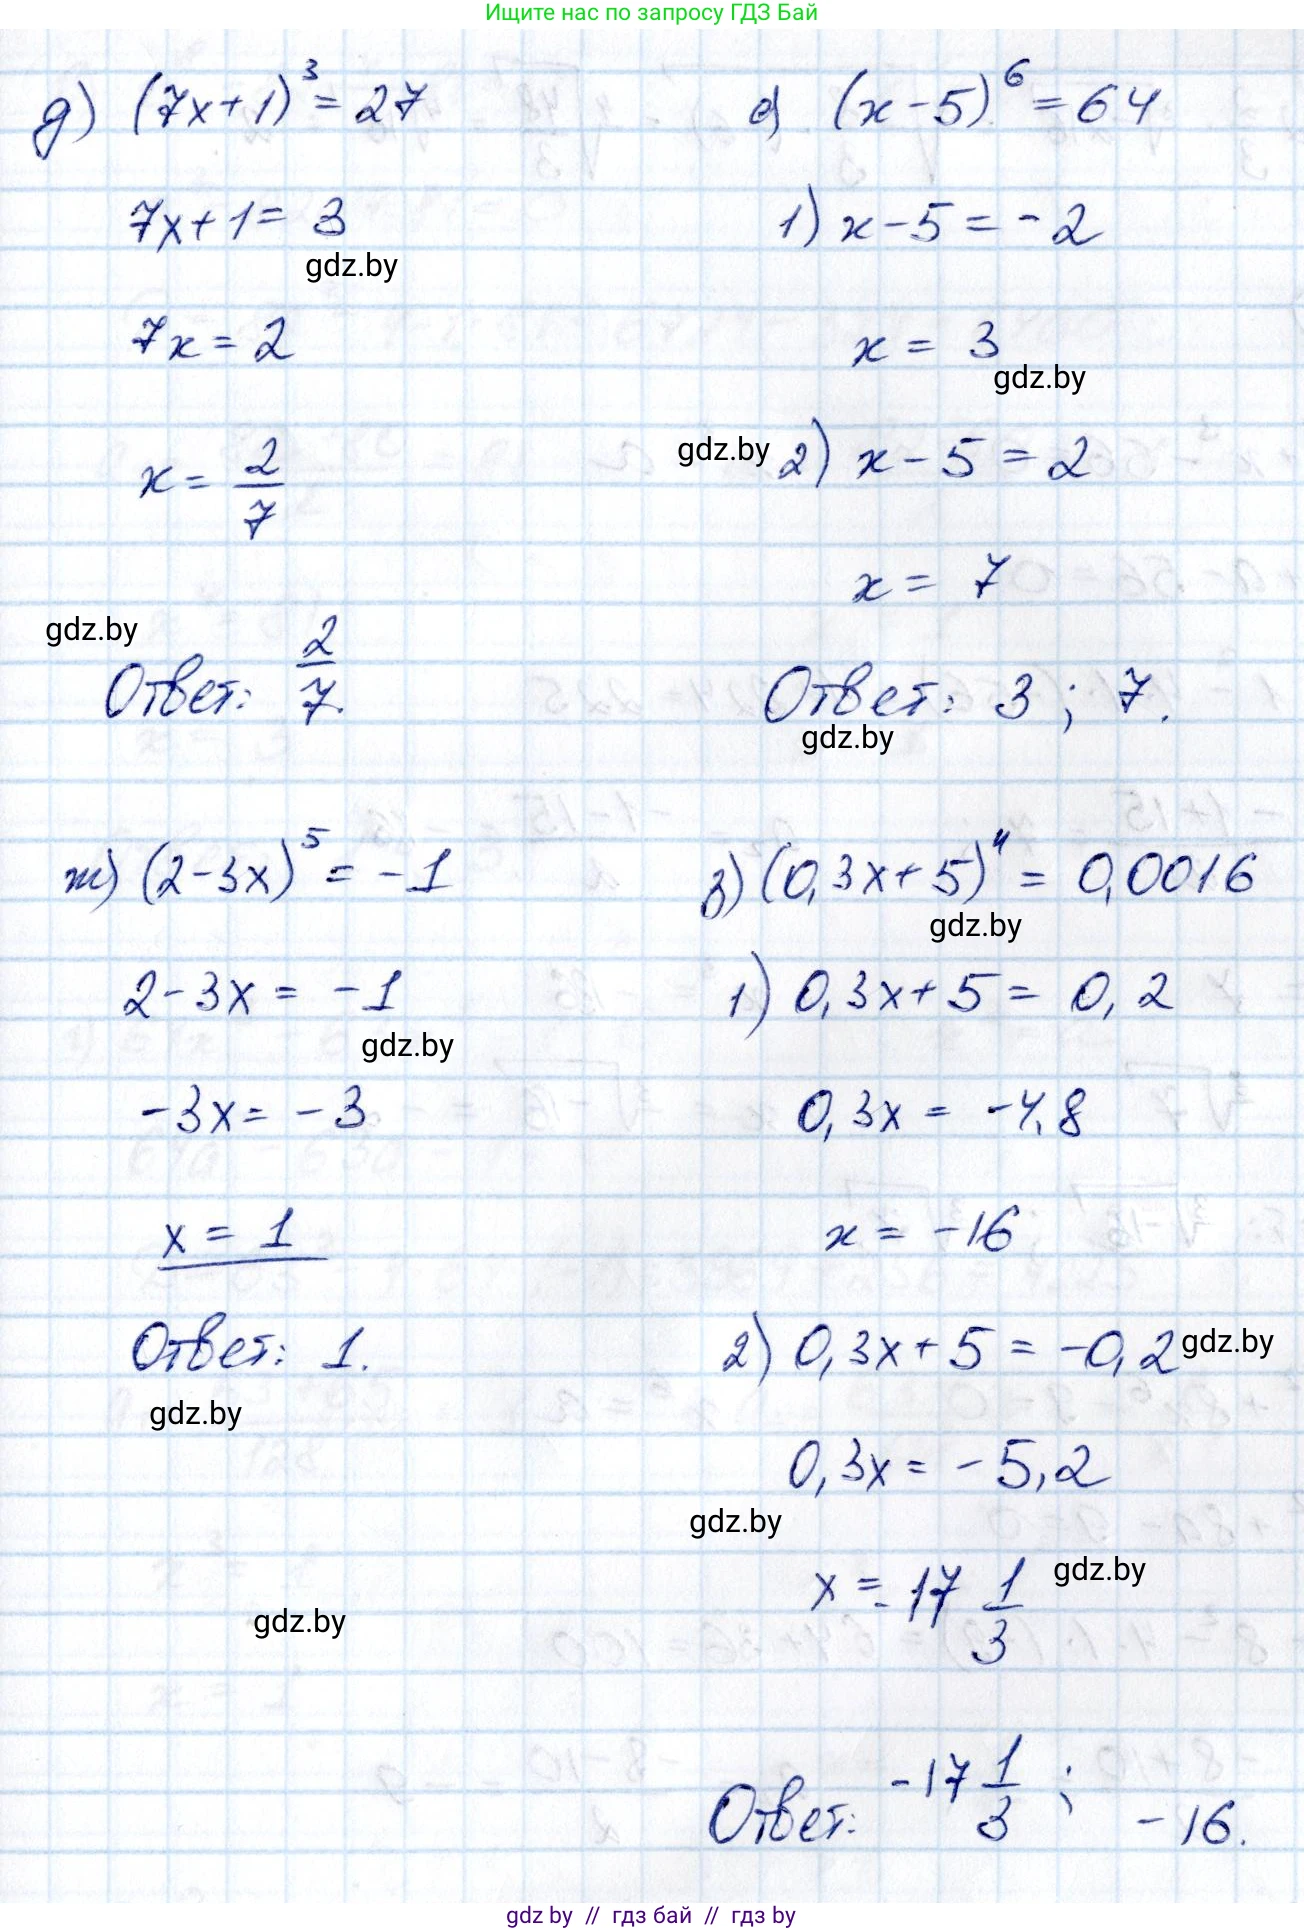 Ищите нас по запросу ГДЗ Бай
д) (7x+1)³ = 27
7x+1 = 3
gdz.by
7x = 2
x = 2/7
gdz.by
Ответ: 2/7.
е) (x-5)⁶ = 64
1) x-5 = -2
x = 3
gdz.by
gdz.by
2) x-5 = 2
x = 7
Ответ: 3; 7.
gdz.by
ж) (2-3x)⁵ = -1
2-3x = -1
gdz.by
-3x = -3
x = 1
Ответ: 1.
gdz.by
gdz.by
з) (0,3x+5)⁴ = 0,0016
gdz.by
1) 0,3x+5 = 0,2
0,3x = -4,8
x = -16
2) 0,3x+5 = -0,2
gdz.by
0,3x = -5,2
gdz.by
x = -17 1/3
gdz.by
Ответ: -17 1/3; -16.
gdz by // гдз бай // гдз by